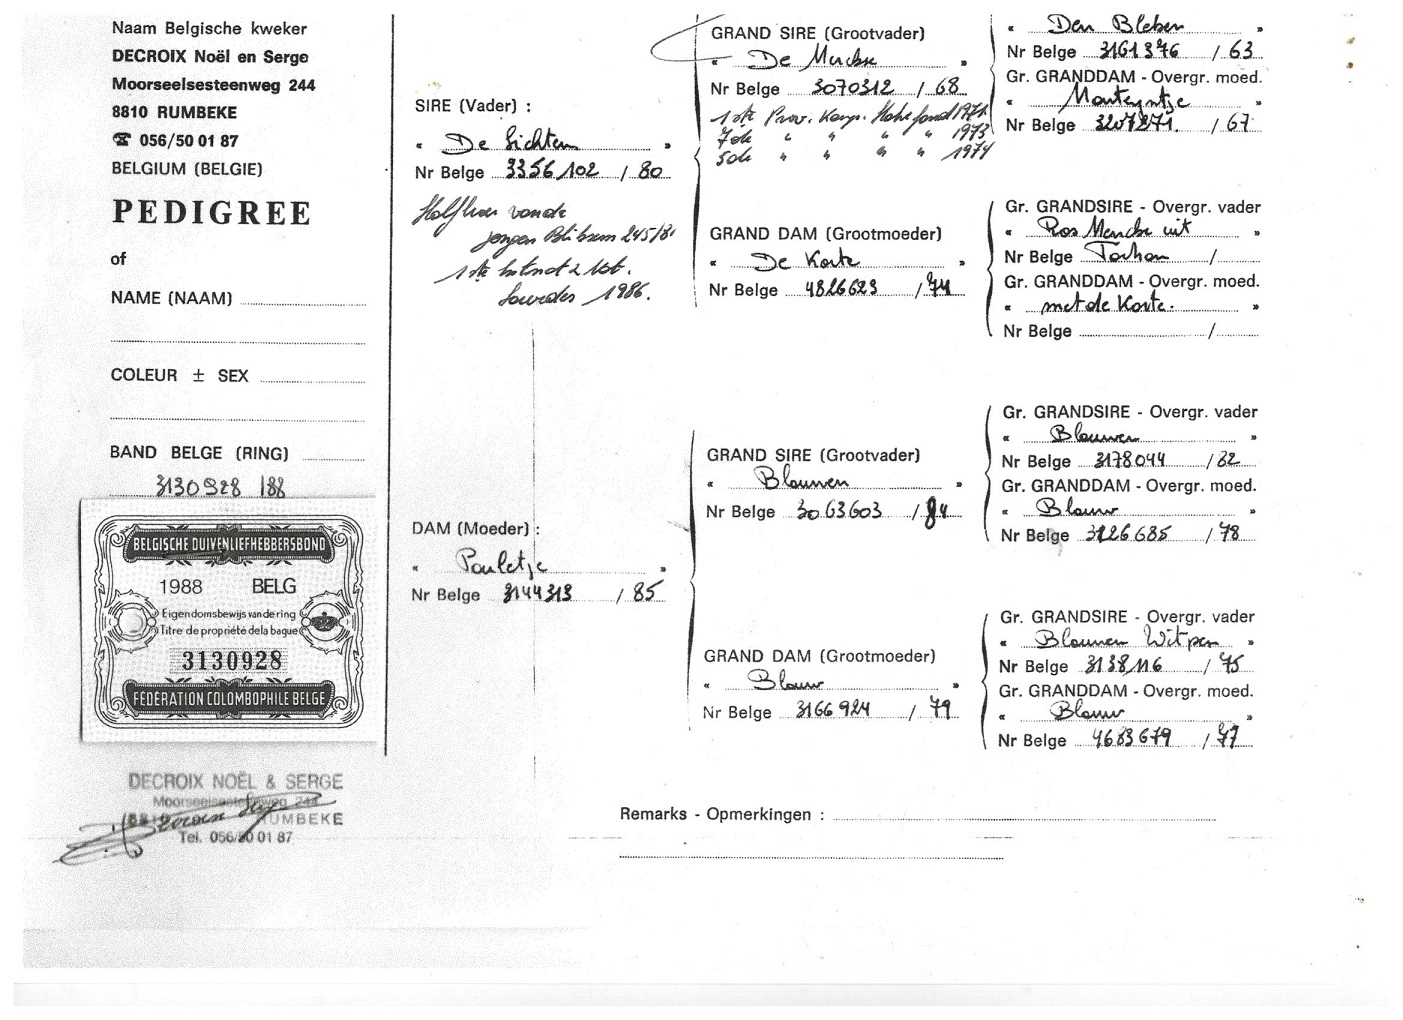 Naam Belgische kweker
DECROIX Noël en Serge
Moorseelsesteenweg 244
8810 RUMBEKE
☎ 056/50 01 87
BELGIUM (BELGIE)
PEDIGREE
of
NAME (NAAM)
COLEUR ± SEX
BAND BELGE (RING)
3130928 / 88
BELGISCHE DUIVENLIEFHEBBERSBOND
1988 BELG
Eigendomsbewijs van de ring
Titre de propriété de la bague
3130928
FÉDÉRATION COLOMBOPHILE BELGE
DECROIX NOËL & SERGE
Moorseelsesteenweg 244
RUMBEKE
Tel. 056/50 01 87
SIRE (Vader) :
" De Lichten "
Nr Belge 3356102 / 80
Halfbroer van de
jongen 245/81
1ste
Lourdes 1986.
DAM (Moeder) :
" Pouletje "
Nr Belge 3144313 / 85
GRAND SIRE (Grootvader)
" De Merckx "
Nr Belge 3070312 / 68
1ste Prov. Kamp. Halve fond 1971
7de " " " " 1973
5de " " " " 1974
GRAND DAM (Grootmoeder)
" De Korte "
Nr Belge 4826623 / 74
GRAND SIRE (Grootvader)
" Blauwen "
Nr Belge 3063603 / 84
GRAND DAM (Grootmoeder)
" Blauw "
Nr Belge 3166924 / 79
" Den Bleken "
Nr Belge 3161376 / 63
Gr. GRANDDAM - Overgr. moed.
" Monteyntje "
Nr Belge 3207271 / 67
Gr. GRANDSIRE - Overgr. vader
" Ros Merckx uit "
Nr Belge Tarzan /
Gr. GRANDDAM - Overgr. moed.
" met de Korte. "
Nr Belge /
Gr. GRANDSIRE - Overgr. vader
" Blauwen "
Nr Belge 3178044 / 82
Gr. GRANDDAM - Overgr. moed.
" Blauw "
Nr Belge 3126685 / 78
Gr. GRANDSIRE - Overgr. vader
" Blauwen Witpen "
Nr Belge 3138116 / 75
Gr. GRANDDAM - Overgr. moed.
" Blauw "
Nr Belge 4683679 / 77
Remarks - Opmerkingen :